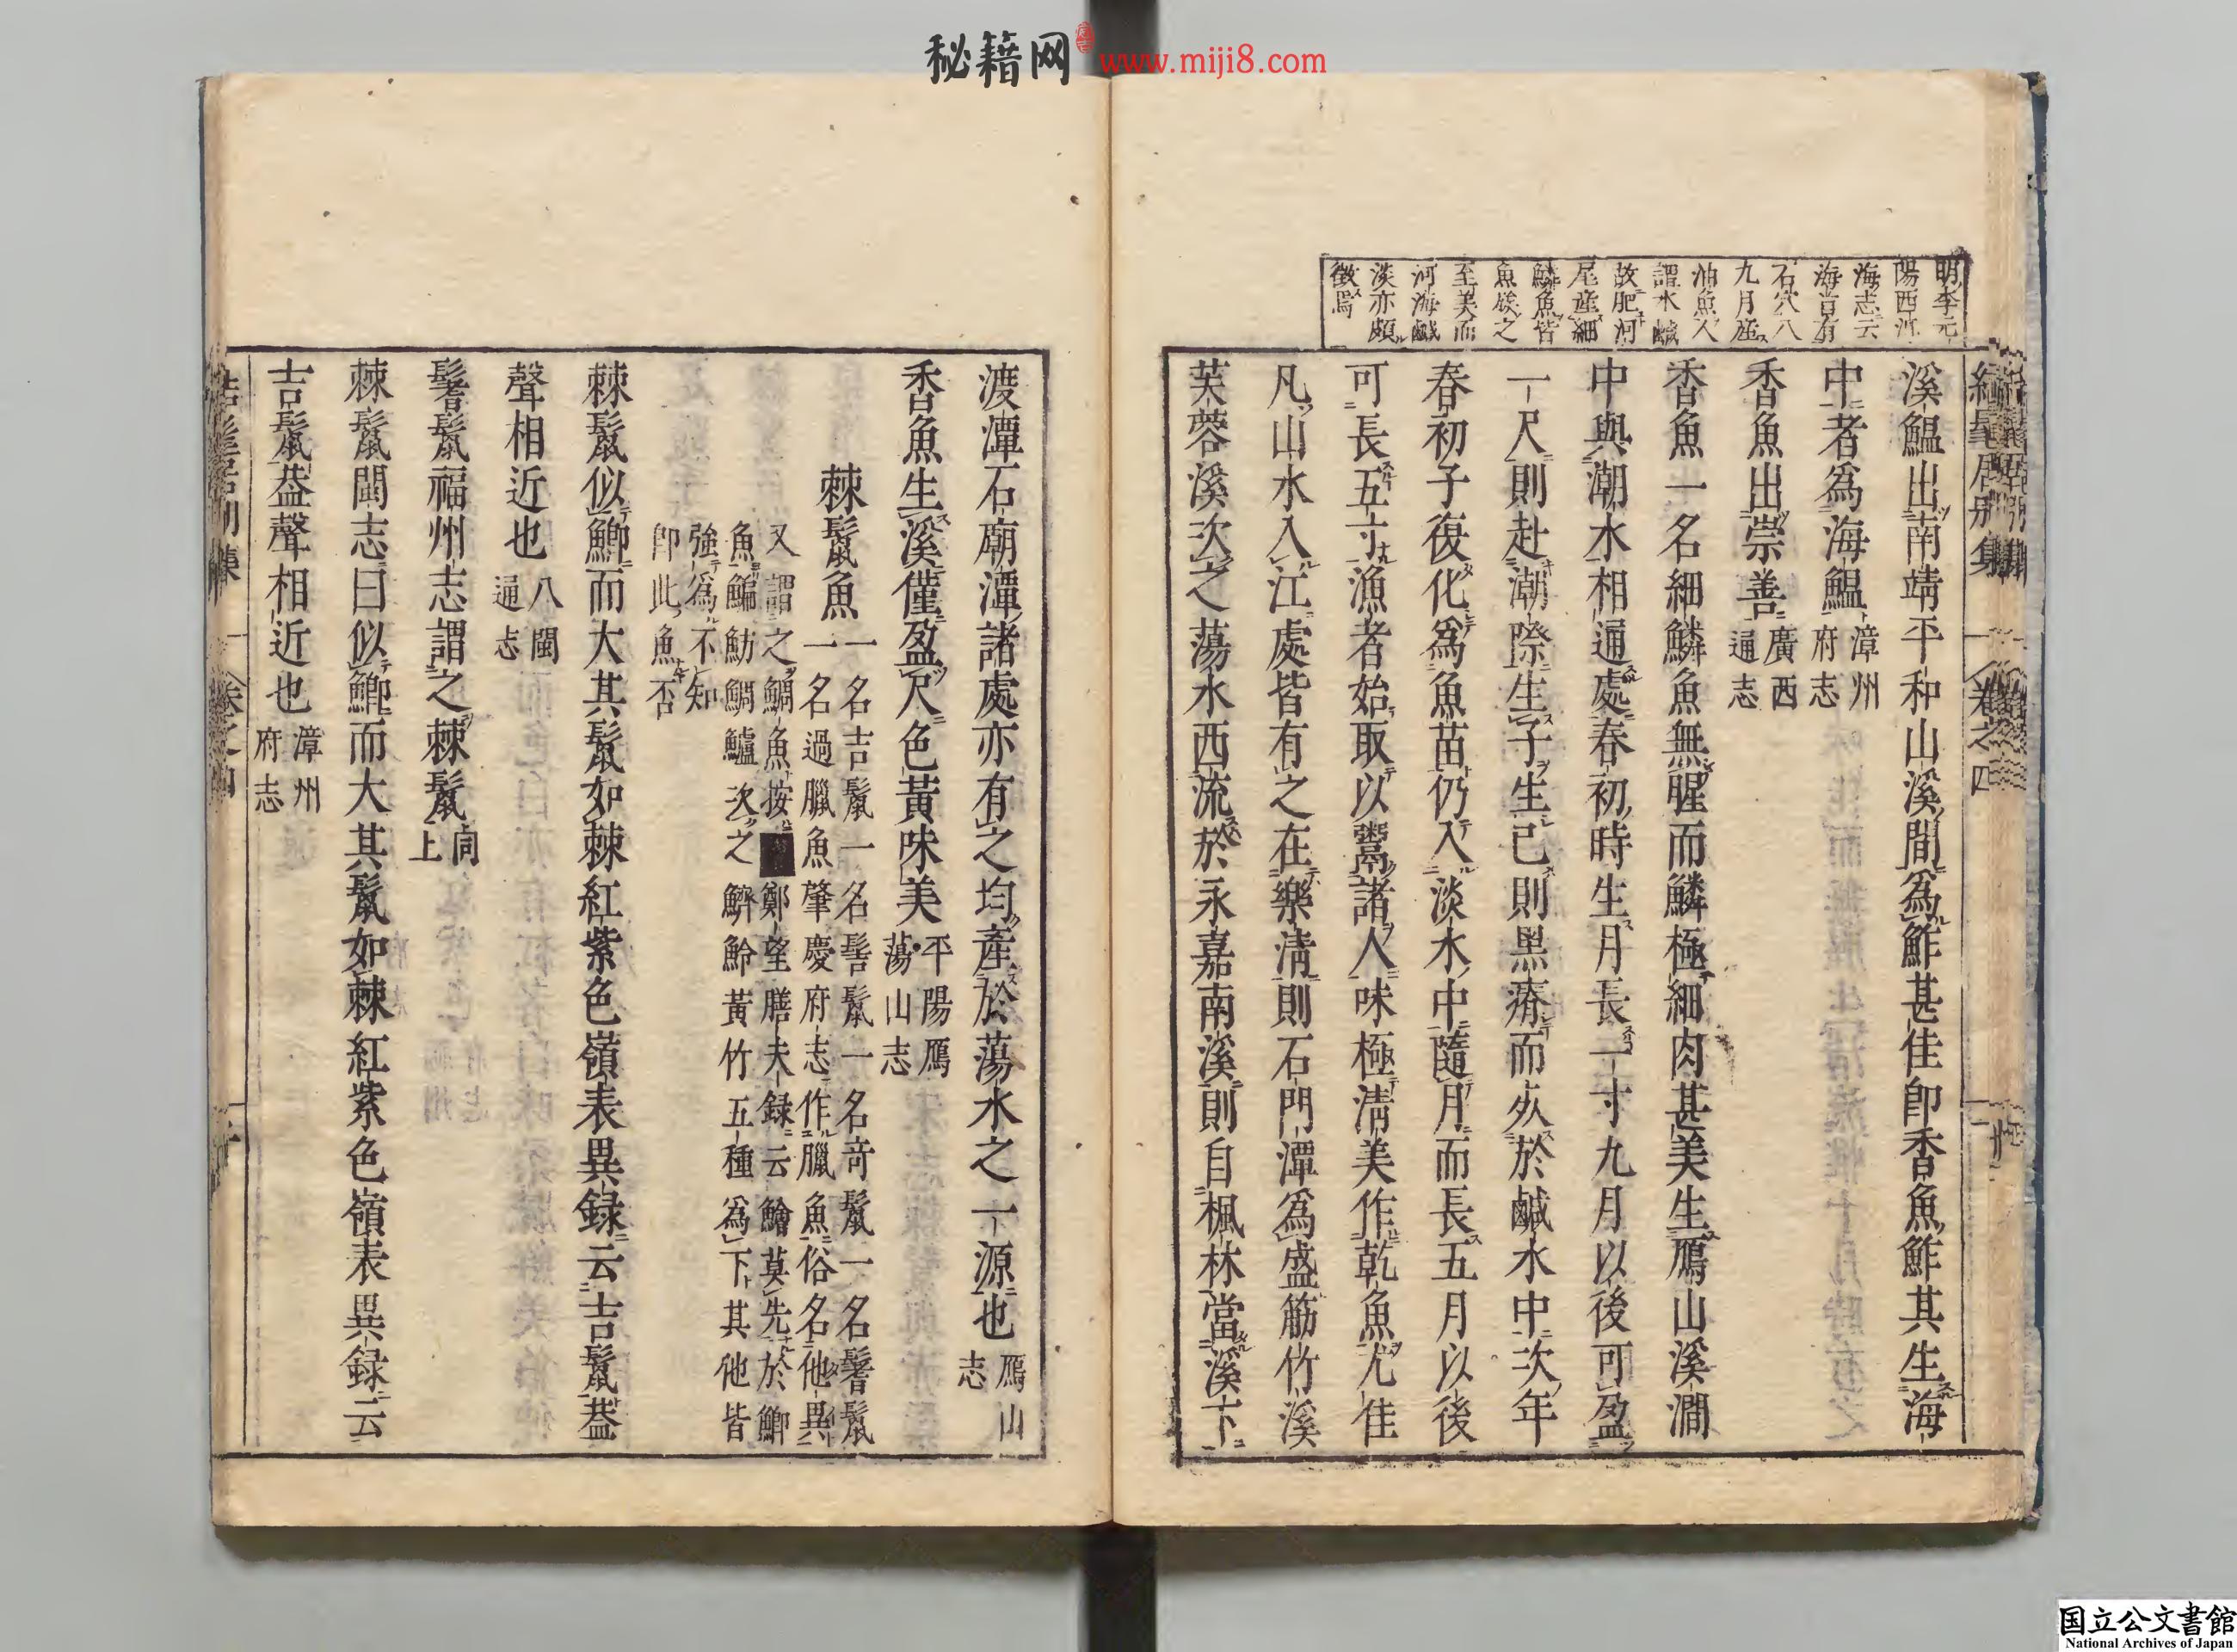 秘籍网 www.miji8.com
明李元
陽西洱
海志云
海首有
石穴八
九月産
油魚入
謂水鹹
故肥河
尾産細
鱗魚皆
魚族之
至美而
河海鹹
淡亦頗
徴焉
結髦居別集 卷之四
溪鰛出南靖平和山溪間為鮓甚佳卽香魚鮓其生海
中者為海鰛 漳州府志
香魚出崇善 廣西通志
香魚一名細鱗魚無腥而鱗極細肉甚美生鴈山溪澗
中與潮水相通處春初時生月長一寸九月以後可盈
一尺則赴潮際生子生已則黒瘠而㱙於鹹水中次年
春初子復化為魚苗仍入淡水中隨月而長五月以後
可長五寸漁者始取以鬻諸人味極淸美作乾魚尤佳
凡山水入江處皆有之在樂淸則石門潭為盛筋竹溪
芙蓉溪次之蕩水西流於永嘉南溪則自楓林當溪下
渡潭石廟潭諸處亦有之均產於蕩水之一源也 鴈山志
香魚生溪僅盈尺色黃味美 平陽鴈蕩山志
棘鬣魚 一名吉鬣一名髻鬣一名奇鬣一名鬐鬣
一名過臘魚肇慶府志作臘魚俗名他異
又謂之鯛魚按 鄭望膳夫録云鱠莫先於鯽
魚鯿魴鯛鱸次之鱭魿黃竹五種為下其他皆
強為不知
卽此魚否
棘鬣似鯽而大其鬣如棘紅紫色嶺表異録云吉鬣葢
聲相近也 八閩通志
鬐鬣福州志謂之棘鬣 同上
棘鬣閩志曰似鯽而大其鬣如棘紅紫色嶺表異録云
吉鬣葢聲相近也 漳州府志
国立公文書館
National Archives of Japan